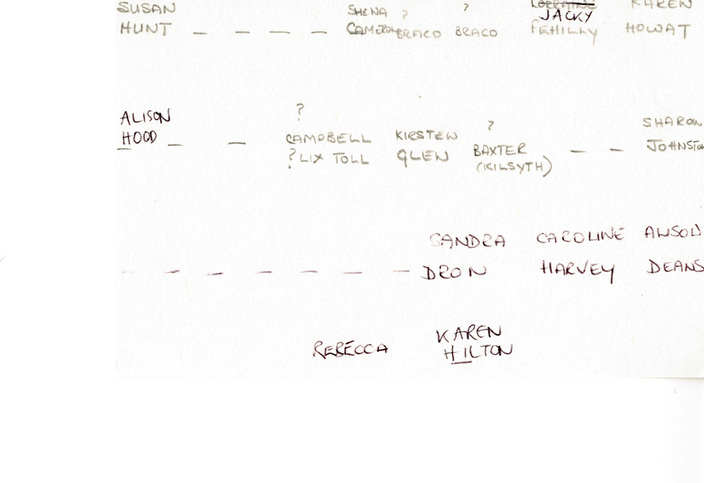 SUSAN SHENA ? ? JACKY KAREN
HUNT — — — — CAMERON BRACO BRACO FEHILLY HOWAT
ALISON ? ? SHARON
HOOD — — CAMPBELL KIRSTEN
? LIX TOLL GLEN BAXTER — — JOHNSTON
(KILSYTH)
SANDRA CAROLINE ALISON
— — — — — — — DRON HARVEY DEANS
REBECCA KAREN
HILTON